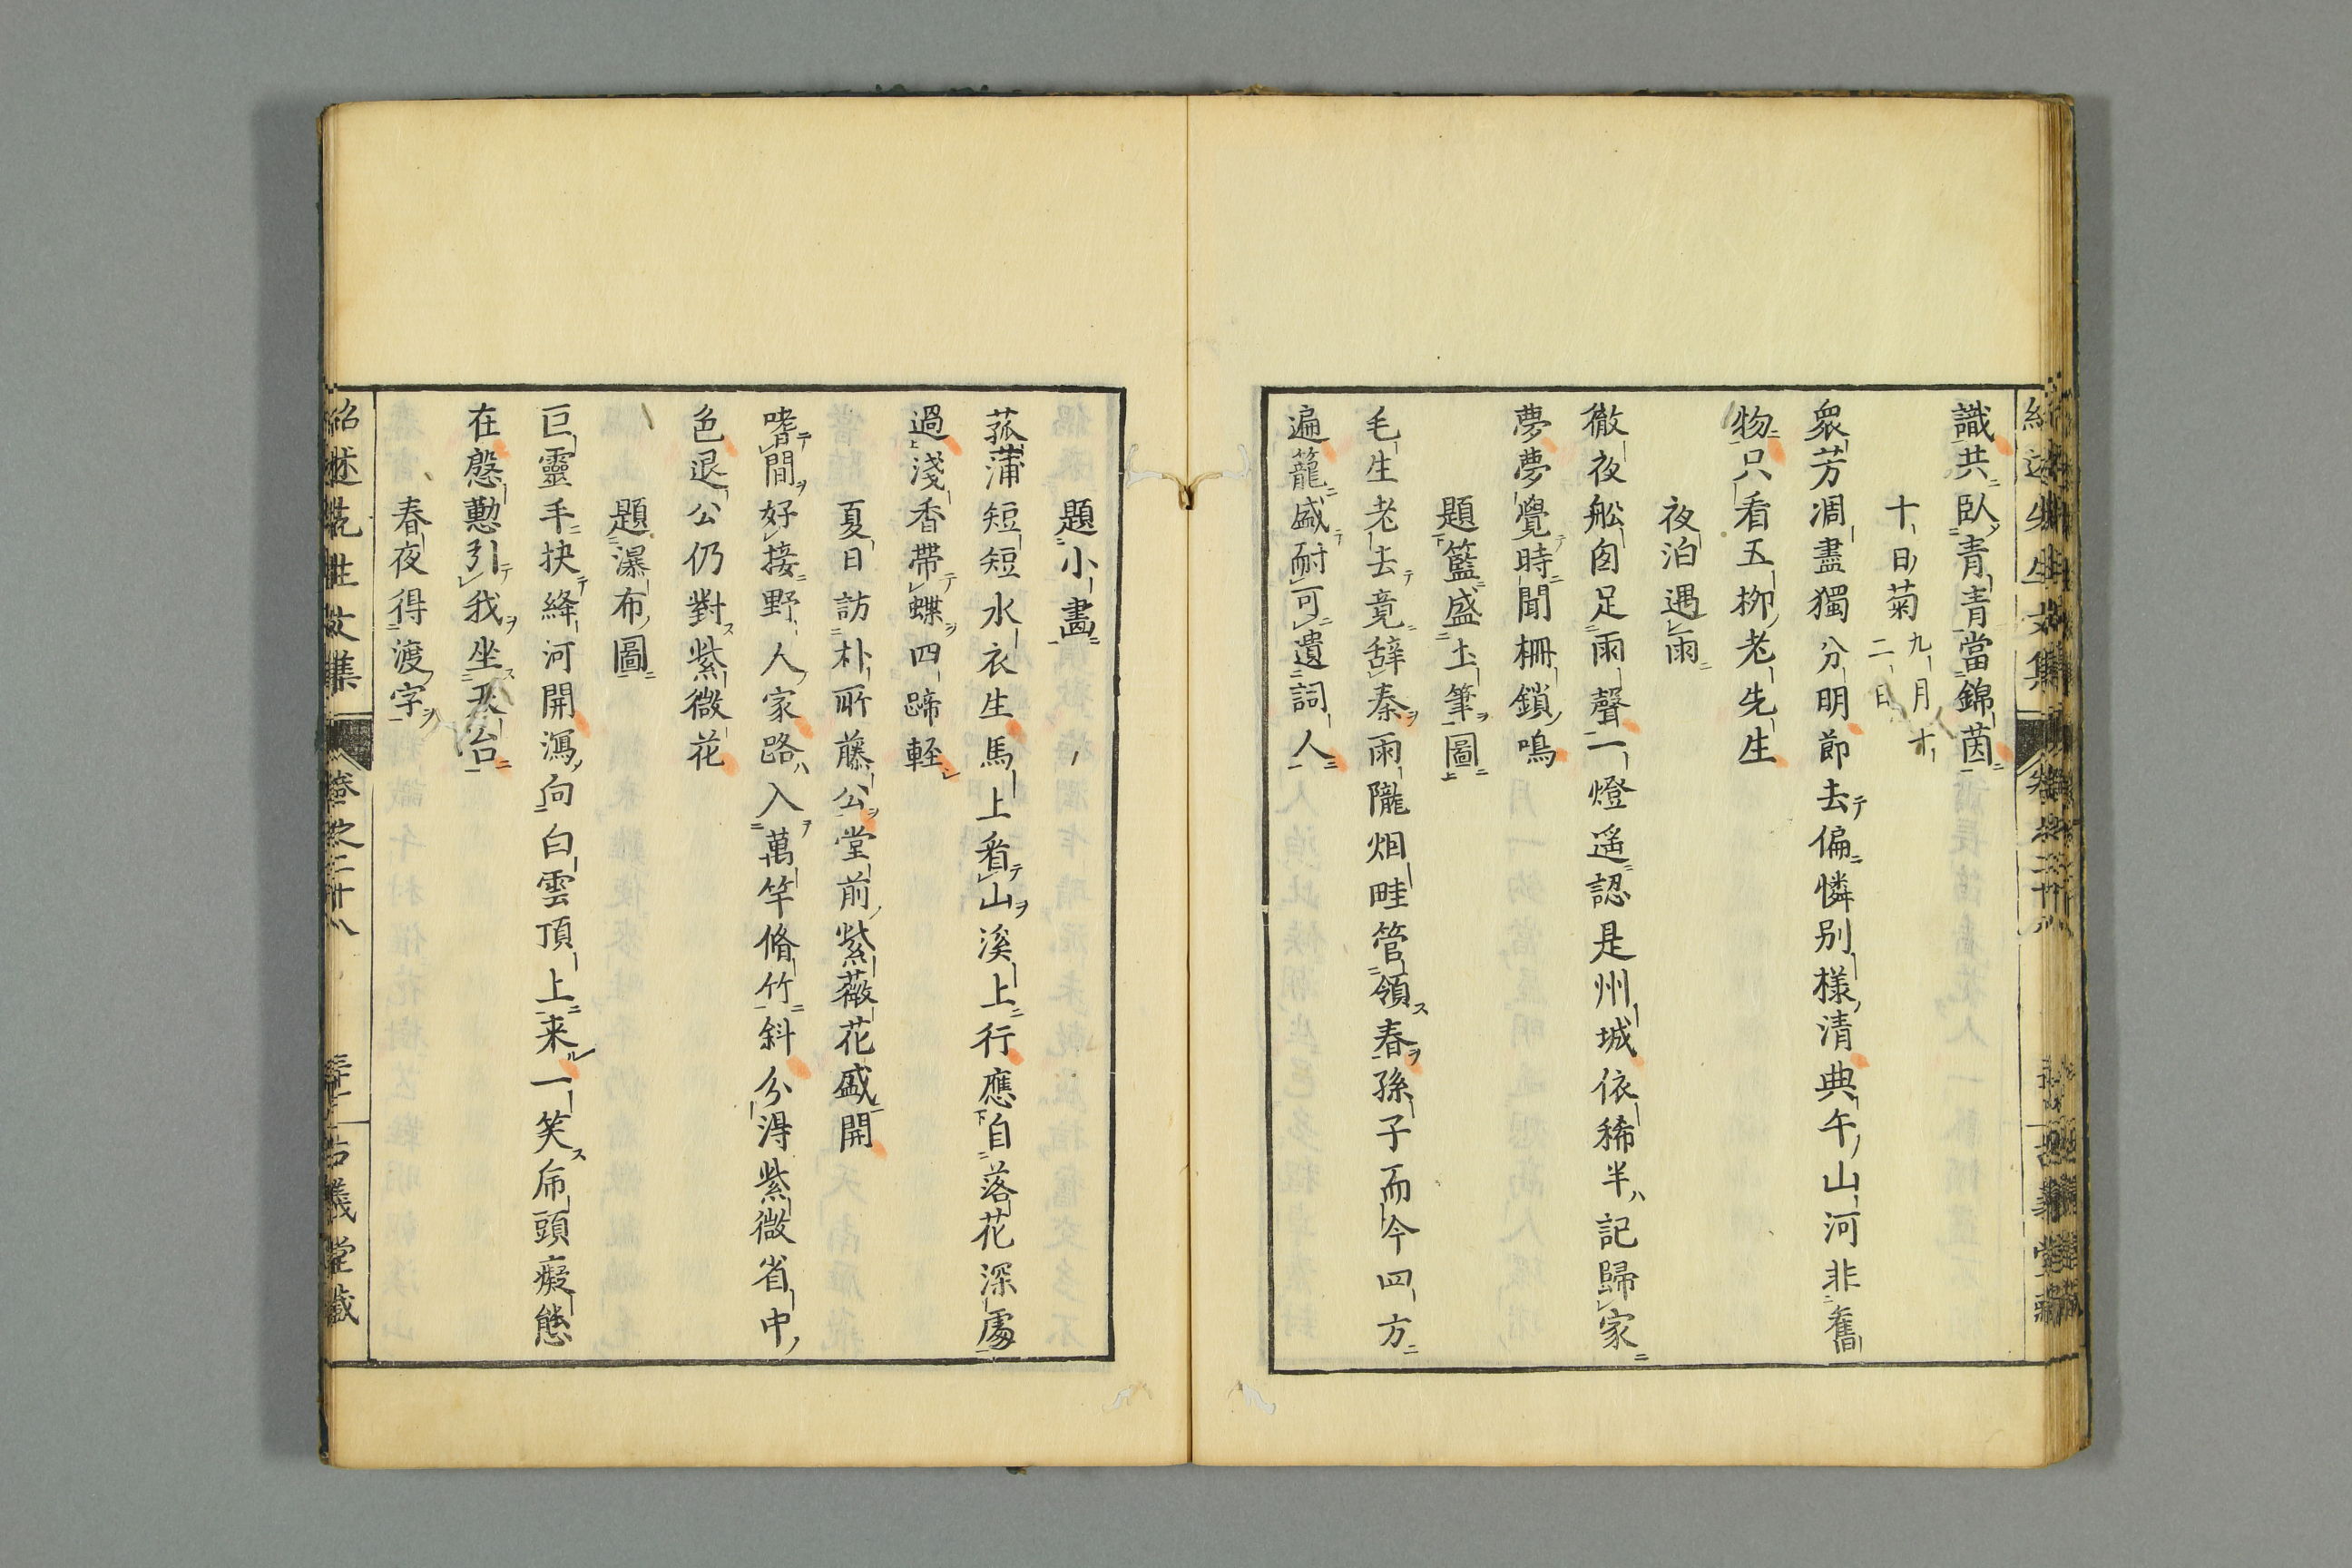 識共臥青青當錦茵
十日菊 九月十二日
衆芳凋盡獨分明節去偏憐別樣清典午山河非舊
物只看五栁老先生
夜泊遇雨
徹夜舩囱足雨聲一燈遥認是州城依稀半記歸家
夢夢覺時聞柵鎖鳴
題籃盛土筆圖
毛生老去竟辞秦雨隴烟畦管領春孫子而今四方
遍籠盛耐可遺詞人
題小畵
菰蒲短短水衣生馬上看山溪上行應自落花深處
過淺香帶蝶四蹄軽
夏日訪朴所藤公堂前紫薇花盛開
嗜間好接野人家路入萬竿脩竹斜分得紫微省中
色退公仍對紫微花
題瀑布圖
巨靈手抉絳河開瀉向白雲頂上来一笑帍頭癡態
在慇懃引我坐天台
春夜得渡字
紹述先生文集
卷之二十八
古義堂藏